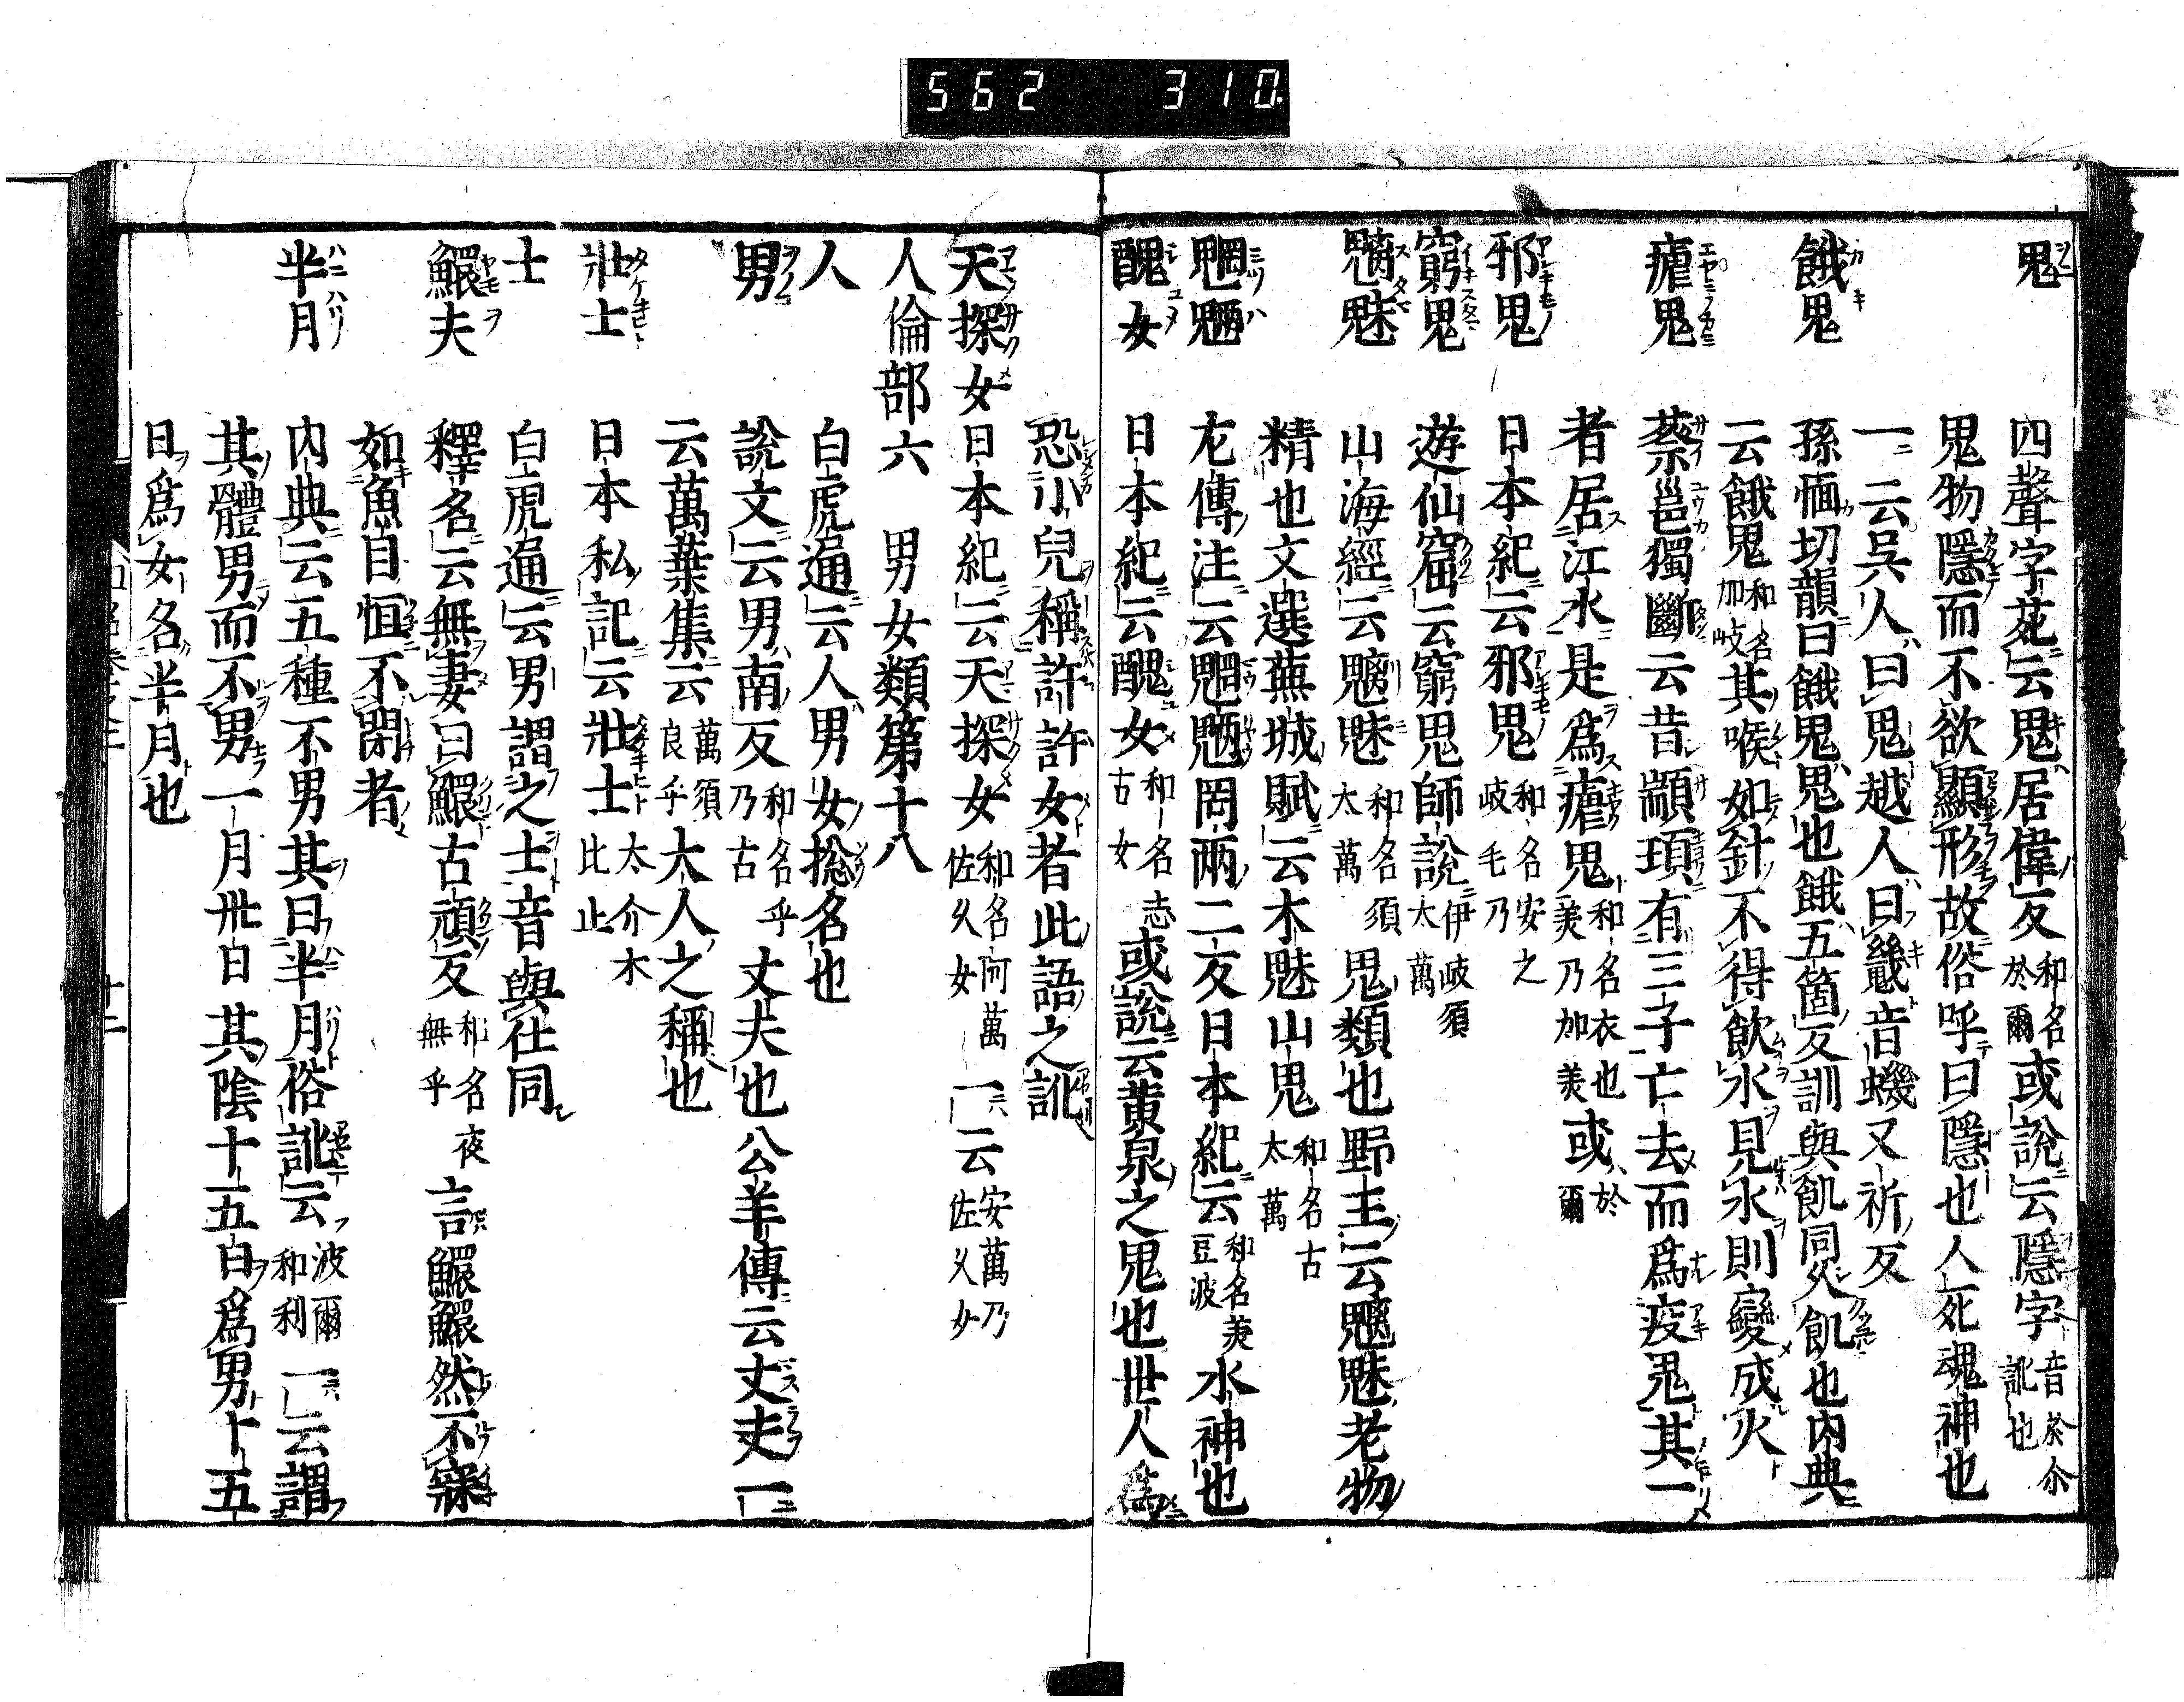 562 310.
鬼 四聲字苑云鬼居偉反 和名於爾 或說云隱字 音於尒訛也
鬼物隱而不欲顯形故俗呼曰隱也人死魂神也
一云呉人曰鬼越人曰䰧音蟣又祈反
餓鬼 孫愐切韻曰餓鬼鬼也餓五箇反訓與飢同久飢也内典
云餓鬼 和名加岐 其喉如針不得飲水見水則變成火
瘧鬼 蔡邕獨斷云昔顓頊有三子亡去而爲疫鬼其一
者居江水是爲瘧鬼 和名衣也美乃加美 或於爾
邪鬼 日本紀云邪鬼 和名安之岐毛乃
窮鬼 遊仙窟云窮鬼師說 伊岐須太萬
魑魅 山海經云魑魅 和名須太萬 鬼類也野王云魑魅老物
精也文選蕪城賦云木魅山鬼 和名古太萬
魍魎 左傳注云魍魎罔兩二反日本紀云 和名美豆波 水神也
醜女 日本紀云醜女 和名志古女 或說云黄泉之鬼也世人爲
恐小兒稱許許女者此語之訛
天探女 日本紀云天探女 和名阿萬佐久女 一云 安萬乃佐久女
人倫部六 男女類第十八
人 白虎通云人男女揔名也
男 說文云男南反 和名乎乃古 丈夫也公羊傳云丈夫一
云萬葉集云 萬須良乎 大人之稱也
壯士 日本私記云壯士 太介木比止
士 白虎通云男謂之士音與仕同
鰥夫 釋名云無妻曰鰥古頑反 和名夜無乎 言鰥鰥然不寐
如魚目恒不閉者
半月 内典云五種不男其曰半月俗訛云 波爾和利 一云謂
其體男而不男一月卅日其陰十五日爲男十五
日爲女名半月也